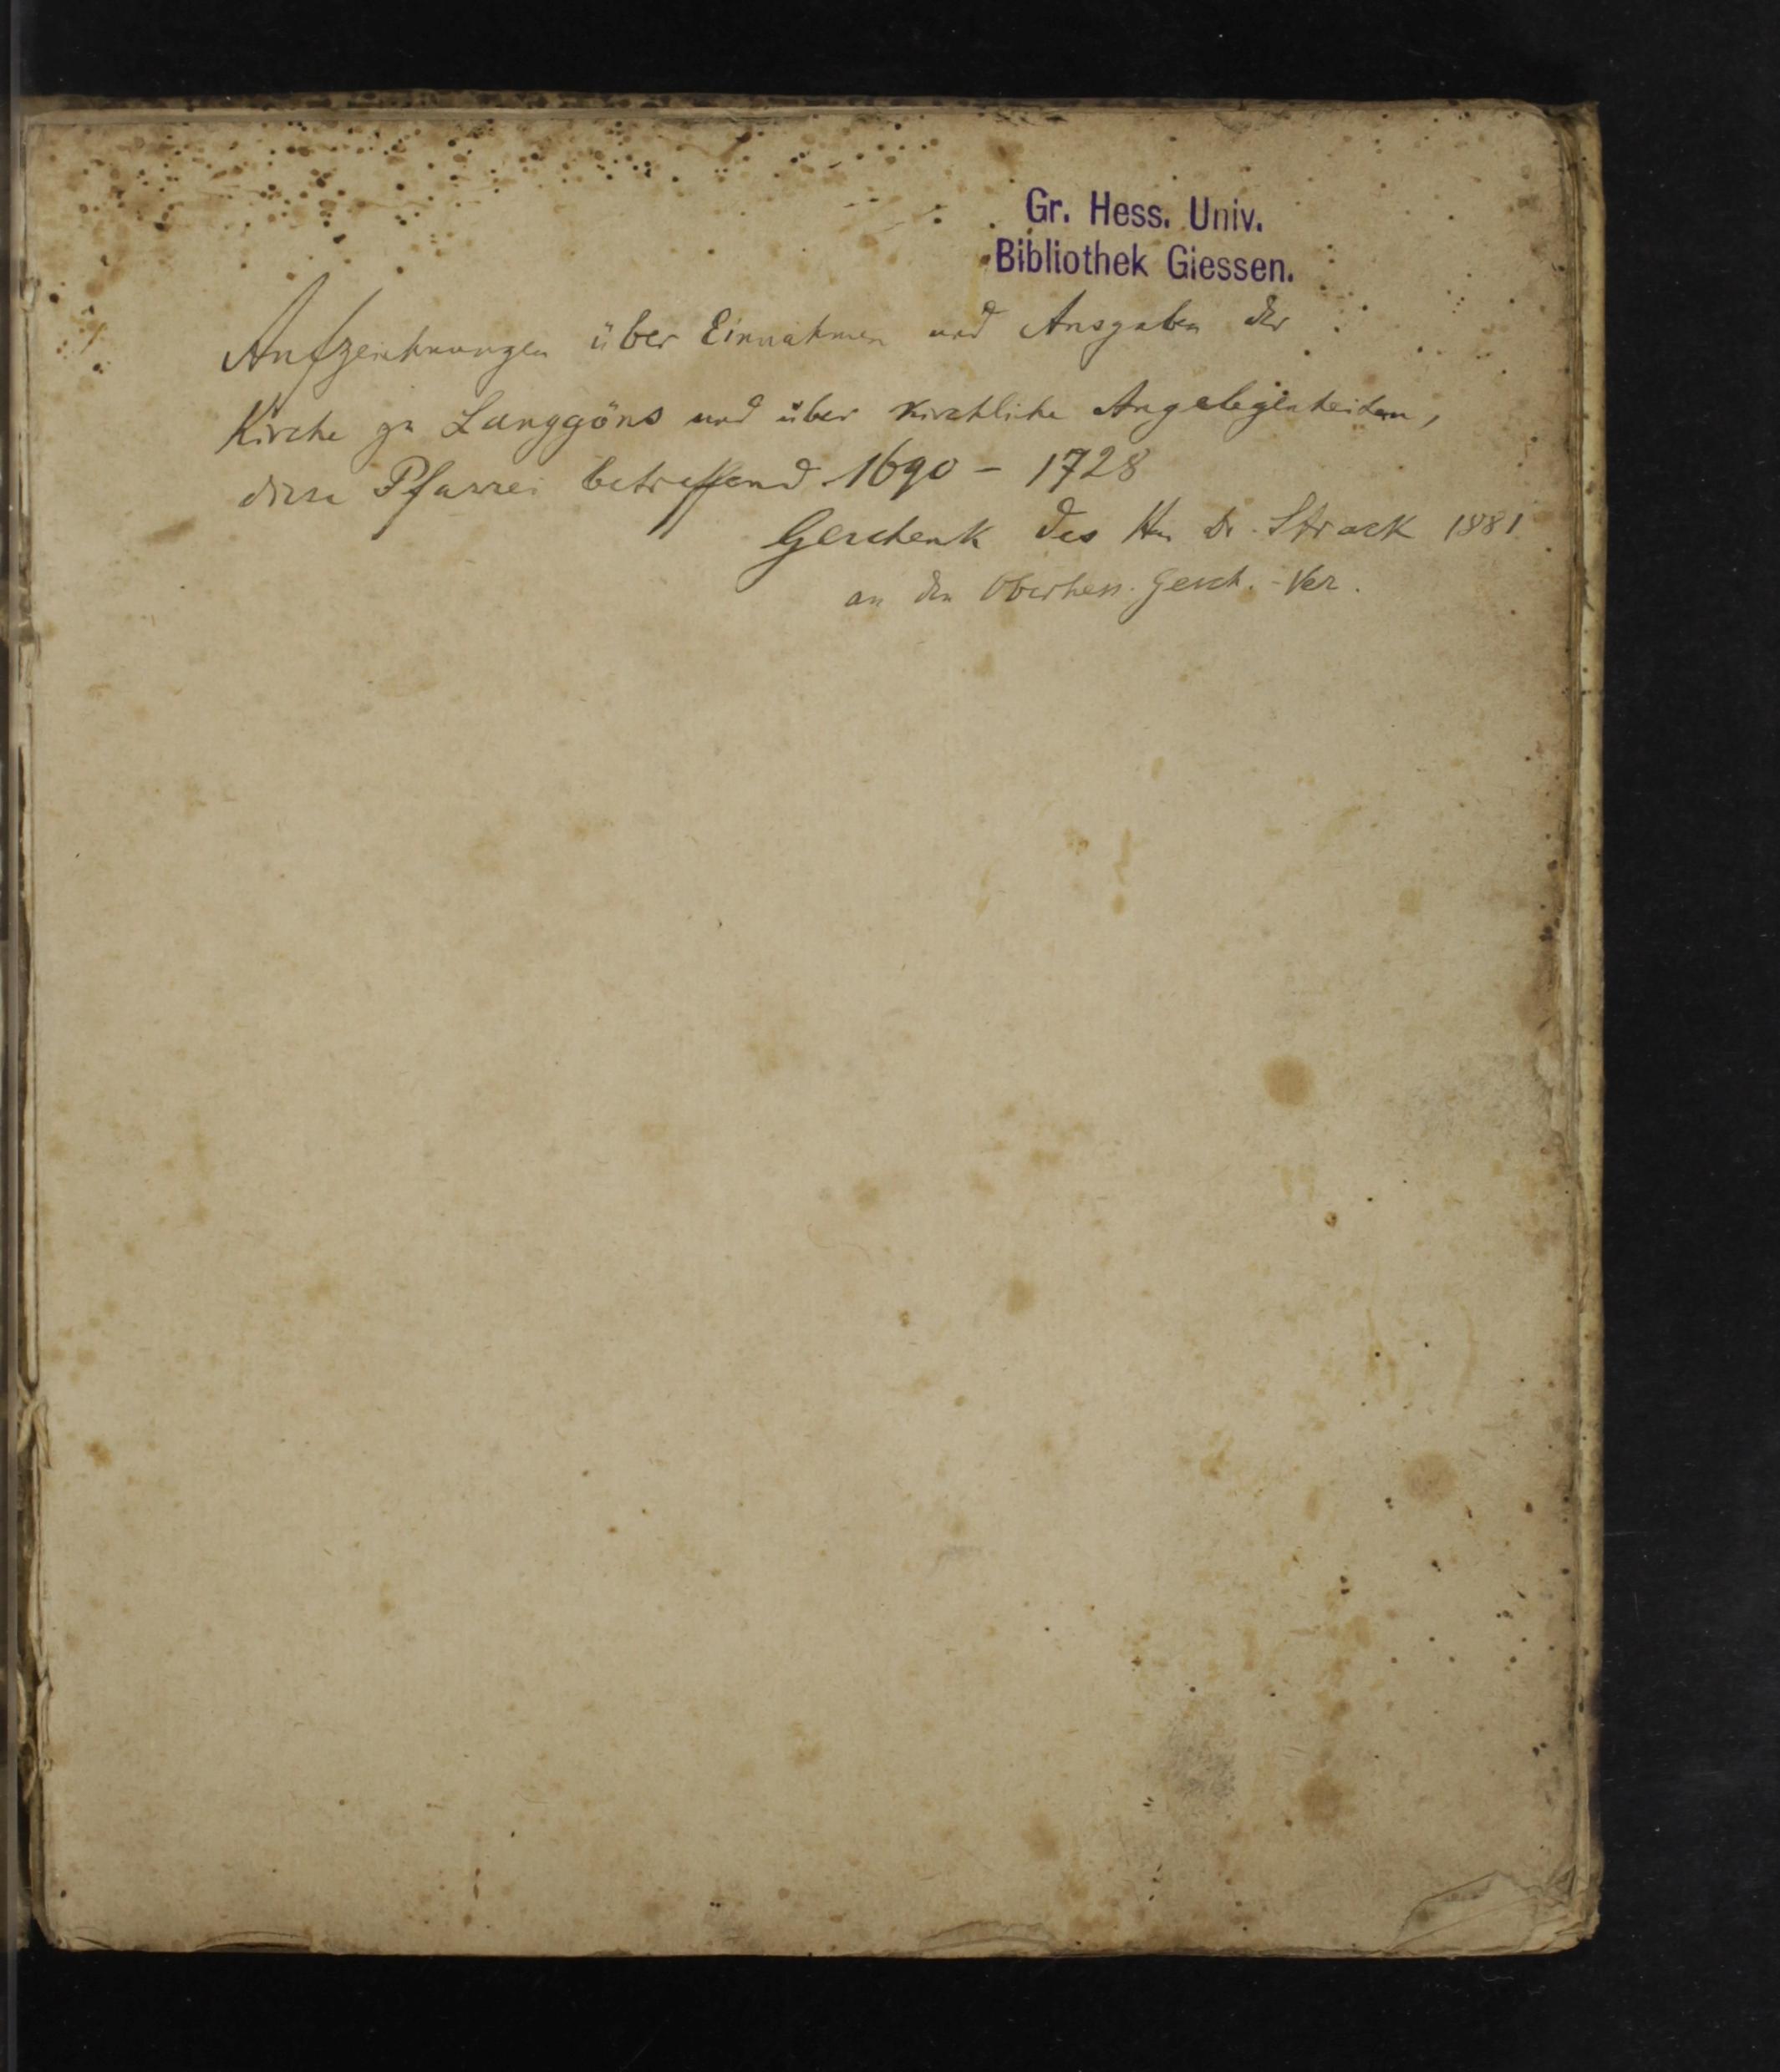 Gr. Hess. Univ.
Bibliothek Giessen.
Aufzeichnungen über Einnahmen und Ausgaben der
Kirche zu Langgöns und über kirchliche Angelegenheiten,
diese Pfarrei betreffend 1690 - 1728
Geschenk des Hn Dr. Strack 1881
an den Oberhess. Gesch. - Ver.